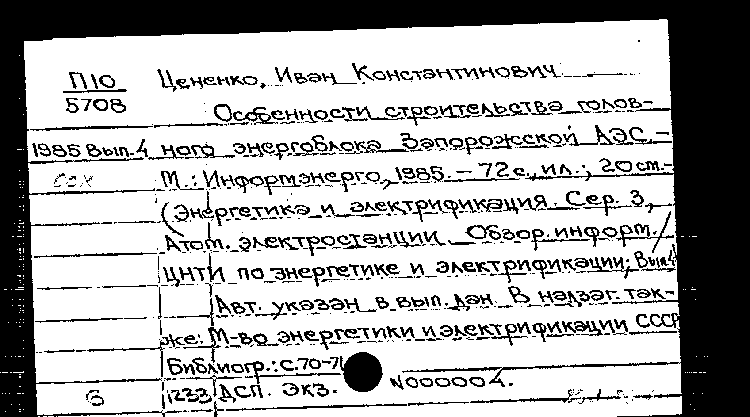 П10 Цененко, Иван Константинович
5708 Особенности строительства голов-
1985 Вып.4 ного энергоблока Запорожской АЭС.-
М.: Информэнерго, 1985. - 72 с., ил.; 20 см.-
(Энергетика и электрификация. Сер. 3,
Атом. электростанции. Обзор. информ. /
ЦНТИ по энергетике и электрификации; Вып.4)
Авт. указан в вып. дан. В надзаг. так-
же: М-во энергетики и электрификации СССР
Библиогр.: с.70-71
1233 ДСП. Экз. N000004.